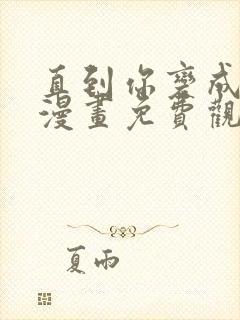 直到你變成
漫畫免費觀
夏雨